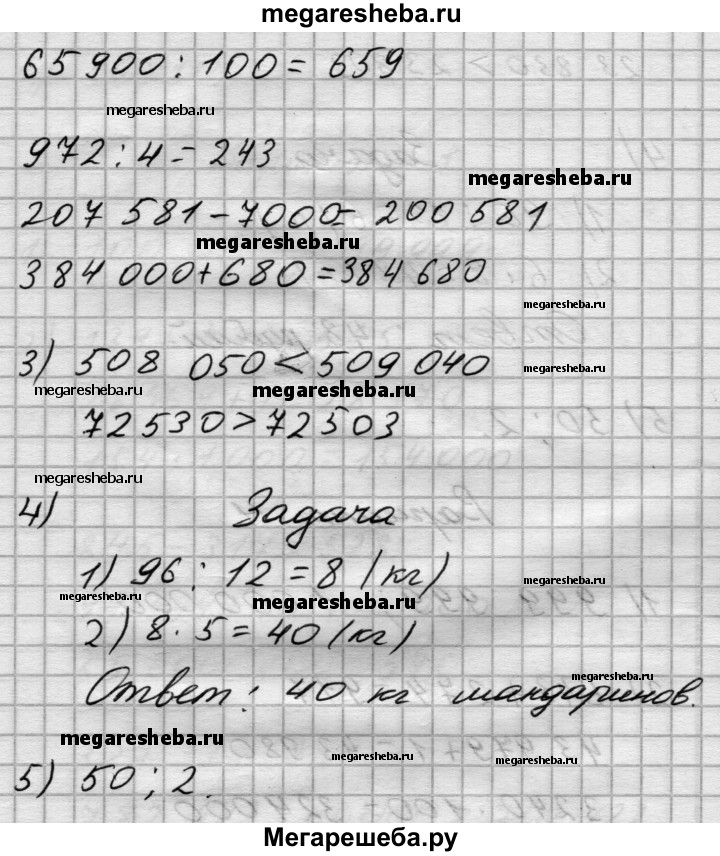 megaresheba.ru
65 900 : 100 = 659
megaresheba.ru
972 : 4 = 243
megaresheba.ru
207 581 - 7000 = 200 581
megaresheba.ru
384 000 + 680 = 384 680
megaresheba.ru
3) 508 050 < 509 040
megaresheba.ru
megaresheba.ru
megaresheba.ru
72 530 > 72 503
megaresheba.ru
4) Задача
1) 96 : 12 = 8 (кг)
megaresheba.ru
megaresheba.ru
megaresheba.ru
2) 8 · 5 = 40 (кг)
Ответ: 40 кг мандаринов.
megaresheba.ru
megaresheba.ru
megaresheba.ru
5) 50 ; 2.
Мегарешеба.ру